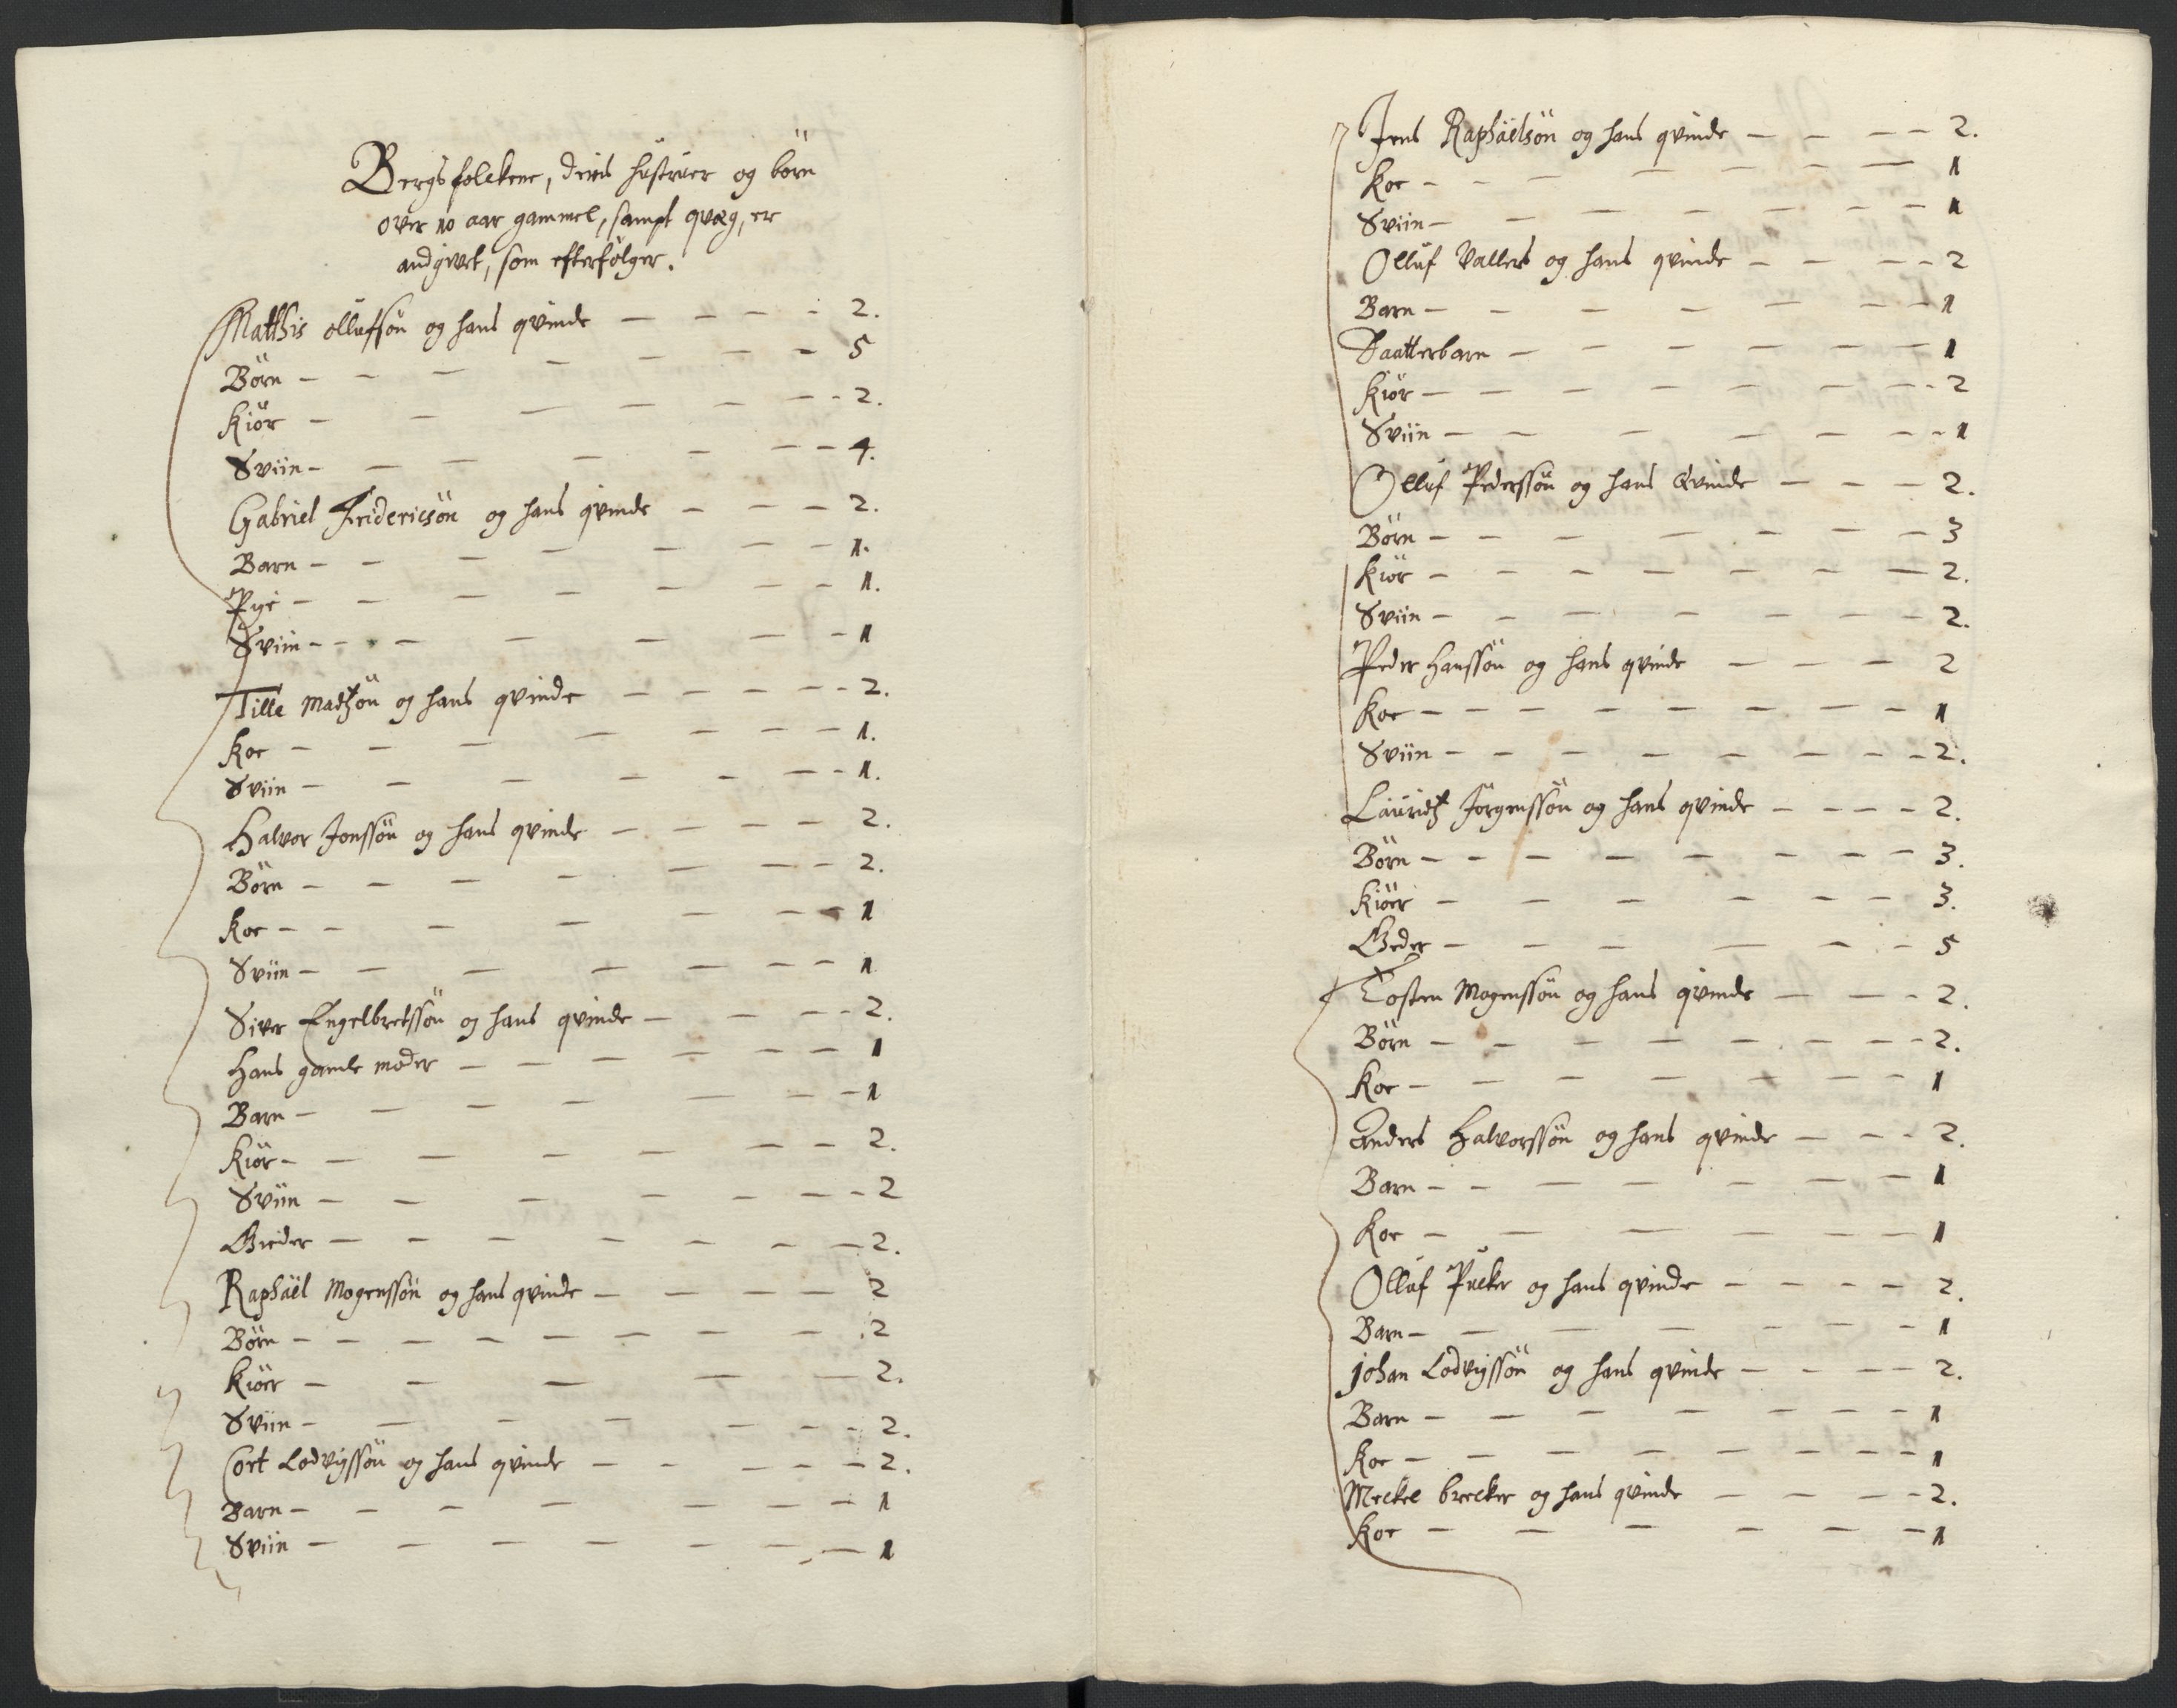 Bergsfolckene, deris hüstrüer og börn
over 10 aar gammel, sampt qvæg, er
andgivet, som efterfölger.
Matthis ollufsön og hans qvinde — — — — 2.
Börn — — — — — — 5
Kiör — — — — — — 2.
Sviin — — — — — — 4.
Gabriel Fridericsön og hans qvinde — — — 2.
Barn — — — — — — 1.
Pige — — — — — — 1.
Sviin — — — — — — 1
Tille Madzön og hans qvinde — — — — — 2.
Koe — — — — — — 1.
Sviin — — — — — — 1.
Halvor Jonssön og hans qvinde — — — — 2.
Börn — — — — — — 2.
Koe — — — — — — 1
Sviin — — — — — — 1
Siver Engelbretssön og hans qvinde — — — — 2.
Hans gamle moder — — — — — — 1
Barn — — — — — — 1
Kiör — — — — — — 2.
Sviin — — — — — — 2
Gieder — — — — — — 2.
Raphäel Mogenssön og hans qvinde — — — — 2
Börn — — — — — — 2
Kiöer — — — — — 2.
Sviin — — — — — — 2.
Cort Lodvigssön og hans qvinde — — — — — 2.
Barn — — — — — — 1
Sviin — — — — — — 1
Jens Raphäelsön og hans qvinde — — — — 2.
Koe — — — — — — 1
Sviin — — — — — — 1
Ollüf Vallers og hans qvinde — — — — 2
Barn — — — — — — 1
Daatterbarn — — — — — — 1
Kiör — — — — — — 2
Sviin — — — — — — 1
Ollüf Pederssön og hans Qvinde — — — 2.
Börn — — — — — — 3
Kiör — — — — — — 2.
Sviin — — — — — — 2.
Peder Hanssön og hans qvinde — — — 2
Koe — — — — — — 1
Sviin — — — — — — 2.
Lauridz Jörgenssön og hans qvinde — — — — 2.
Börn — — — — — — 3.
Kiöer — — — — — — 3.
Geder — — — — — — 5
Tosten Mogenssön og hans qvinde — — — 2.
Börn — — — — — — 2.
Koe — — — — — — 1
Anders Halvorssön og hans qvinde — — — 2.
Barn — — — — — — 1
Koe — — — — — — 1
Ollüf Pücker og hans qvinde — — — — 2.
Barn — — — — — — 1
Johan Lodvigssön og hans qvinde — — — — 2.
Barn — — — — — — 1
Koe — — — — — — 1
Meckel brecker og hans qvinde — — — — 2.
Koe — — — — — — 1